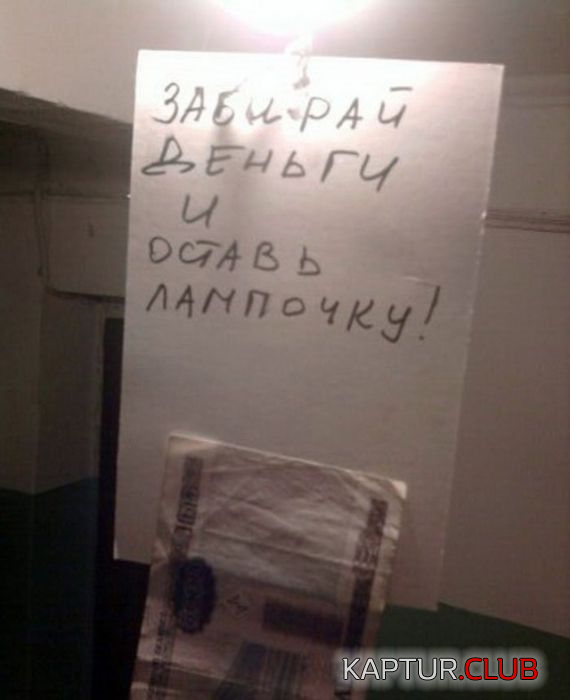 ЗАБИРАЙ
ДЕНЬГИ
И
ОСТАВЬ
ЛАМПОЧКУ!
KAPTUR.CLUB